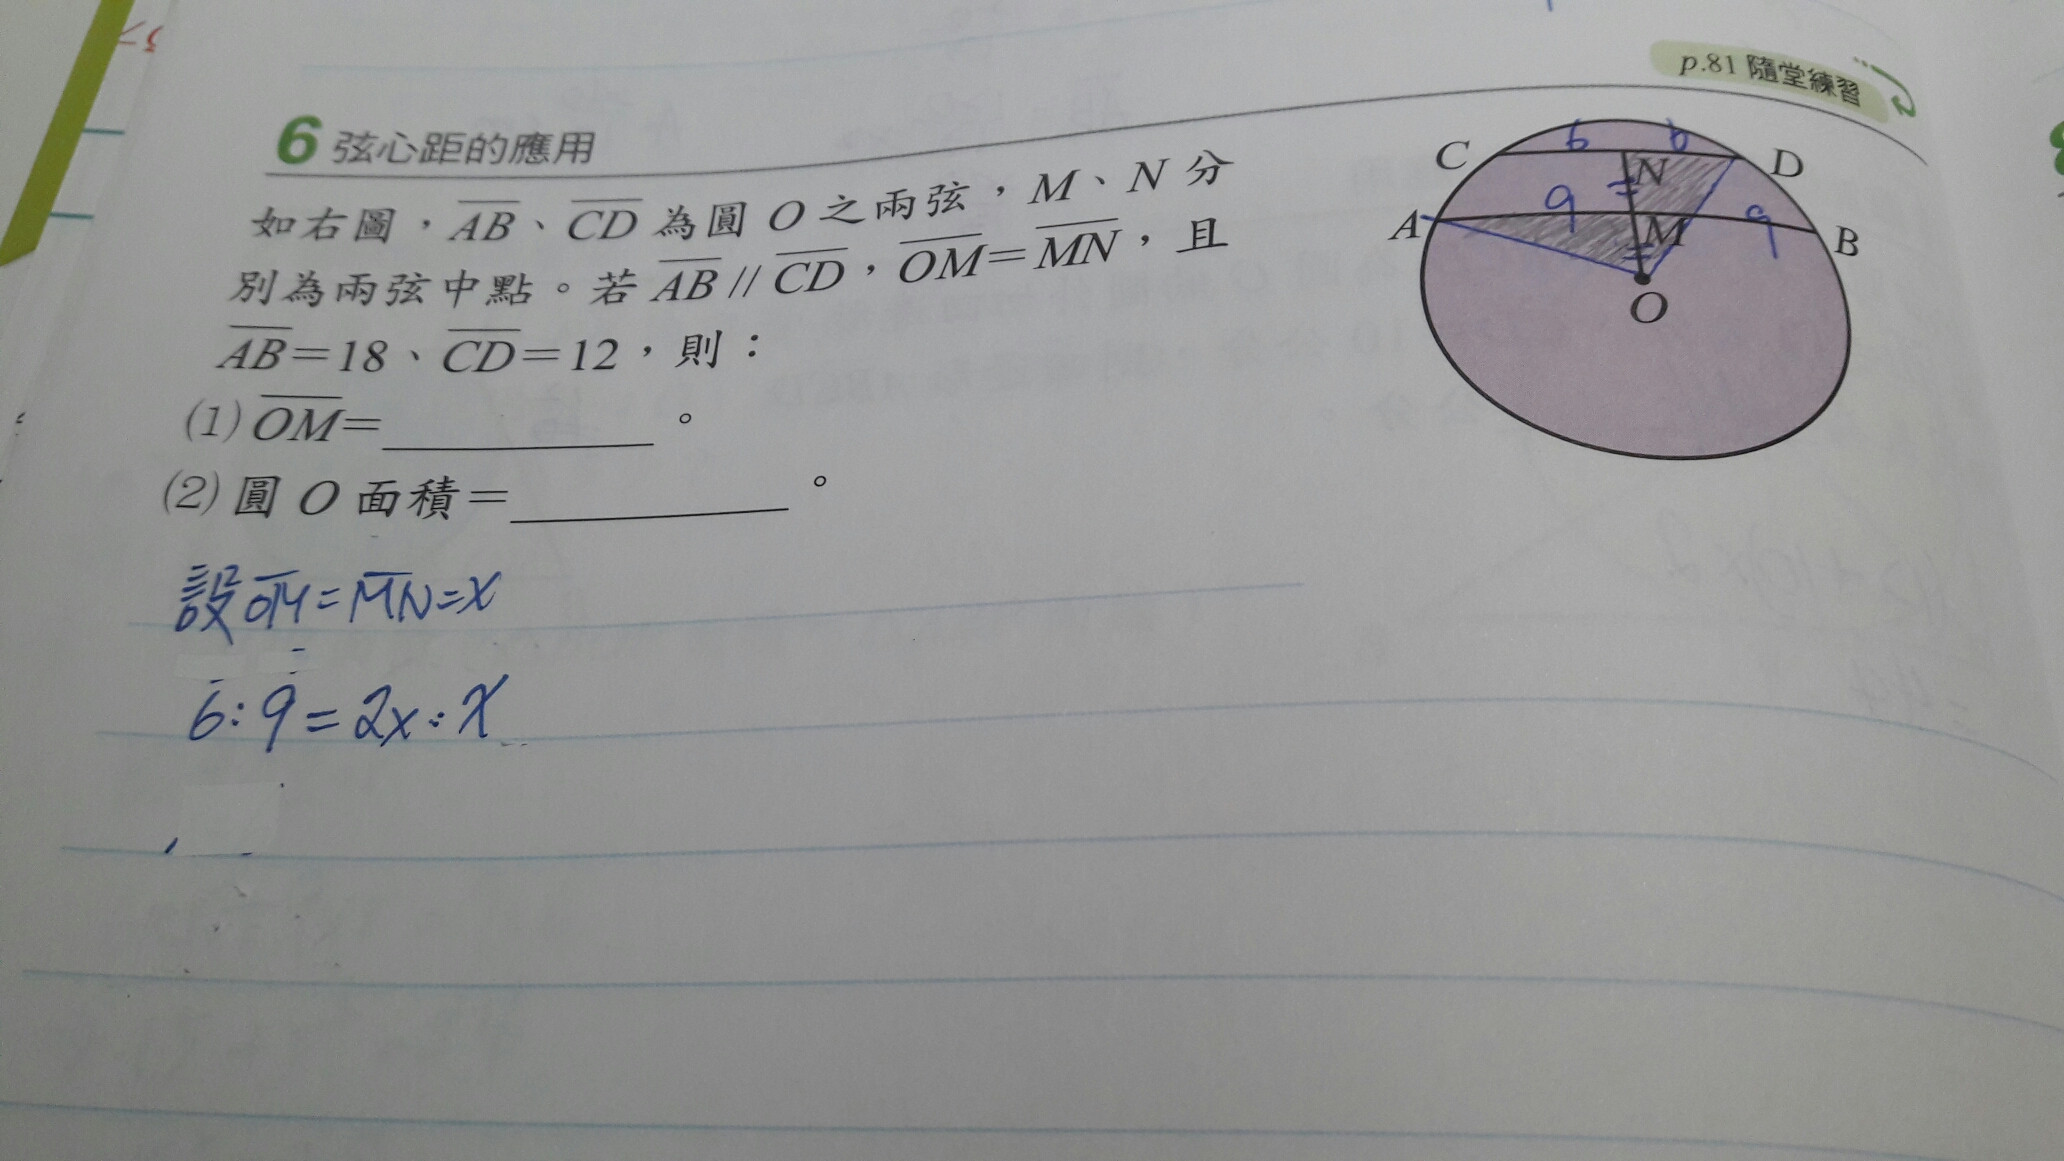 p.81 隨堂練習
6 弦心距的應用
如右圖，AB、CD 為圓 O 之兩弦，M、N 分
別為兩弦中點。若 AB // CD，OM=MN，且
AB=18、CD=12，則：
(1) OM=______。
(2) 圓 O 面積=______。
C 6 6 D
N
A 9 9 B
M
O
設 OM=MN=x
6:9=2x:x